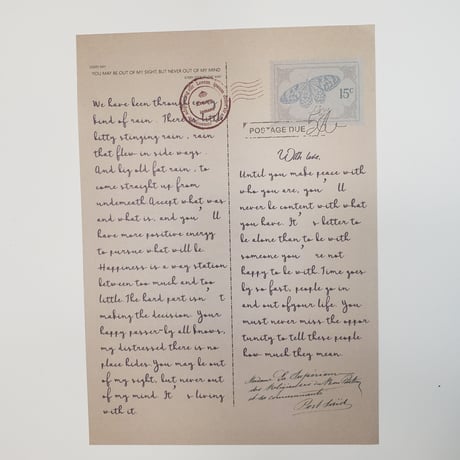 YOU MAY BE OUT OF MY SIGHT, BUT NEVER OUT OF MY MIND
We have been through every
kind of rain. There is little
bitty stinging rain, rain
that flew in side ways.
And big old fat rain, to
come straight up from
underneath. Accept what was
and what is, and you'll
have more positive energy
to pursue what will be.
Happiness is a way station
between too much and too
little. The hard part isn't
making the decision. Your
happy passer-by all knows,
my distressed there is no
place hides. You may be out
of my sight, but never out
of my mind. It's living
with it.
15¢
POSTAGE DUE
With love,
Until you make peace with
who you are, you'll
never be content with what
you have. It's better to
be alone than to be with
someone you're not
happy to be with. Time goes
by so fast, people go in
and out of your life. You
must never miss the oppor
tunity to tell these people
how much they mean.
Madame La Supérieure
des Religieuses du Bon
et des communauté
Port Saïd